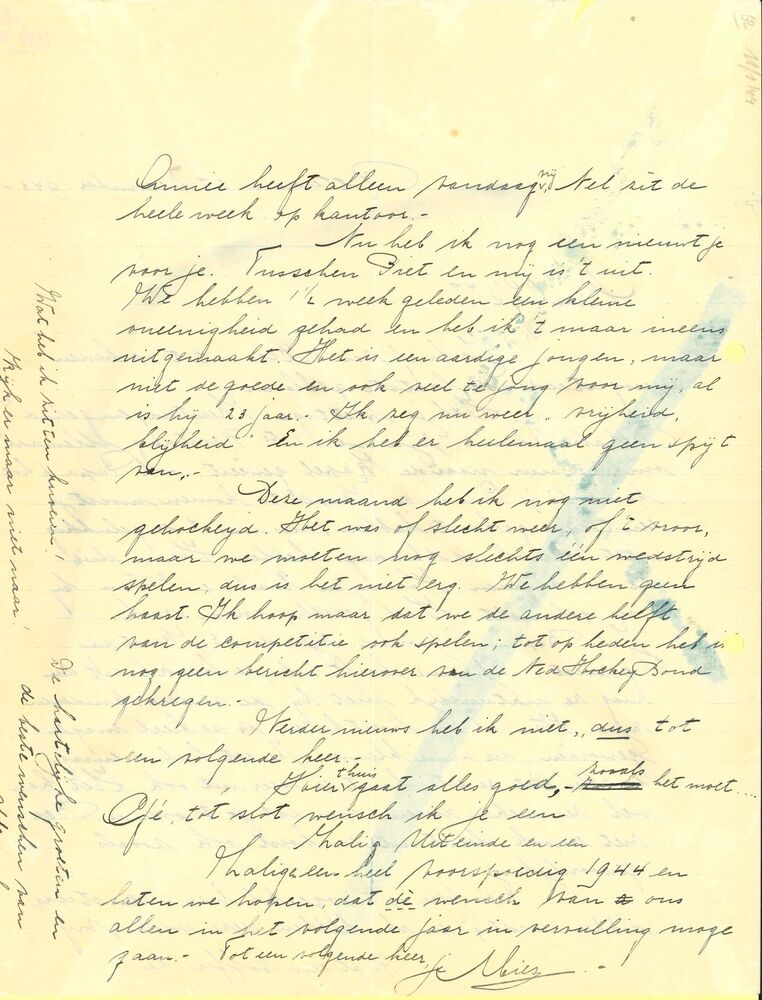 62 11/1/44
Annie heeft alleen vandaag vrij, Nel zit de
heele week op kantoor.-
Nu heb ik nog een nieuwtje
voor je. Tusschen Piet en mij is 't uit.
We hebben 1½ week geleden een kleine
oneenigheid gehad en heb ik 't maar ineens
uitgemaakt. Het is een aardige jongen, maar
niet de goede en ook veel te jong voor mij, al
is hij 23 jaar.- Ik zeg nu weer „vrijheid,
blijheid" En ik heb er heelemaal geen spijt
van.-
Deze maand heb ik nog niet
gehockeyd. Het was of slecht weer, of 't vroor,
maar we moeten nog slechts één wedstrijd
spelen, dus is het niet erg. We hebben geen
haast. Ik hoop maar dat we de andere helft
van de competitie ook spelen; tot op heden heb ik
nog geen bericht hierover van de Ned Hockey Bond
gekregen.-
Verder nieuws heb ik niet, dus tot
een volgende keer.-
Hier thuis gaat alles goed,- zooals het moet....
Ojé, tot slot wensch ik je een
Zalig Uiteinde en een
Zalig een heel voorspoedig 1944 en
laten we hopen, dat dè wensch van ons
allen in het volgende jaar in vervulling moge
gaan.- Tot een volgende keer, je Miez.-
Wat heb ik zitten knoeien!
Kijk er maar niet naar!
De hartelijke groeten en
de beste wenschen van